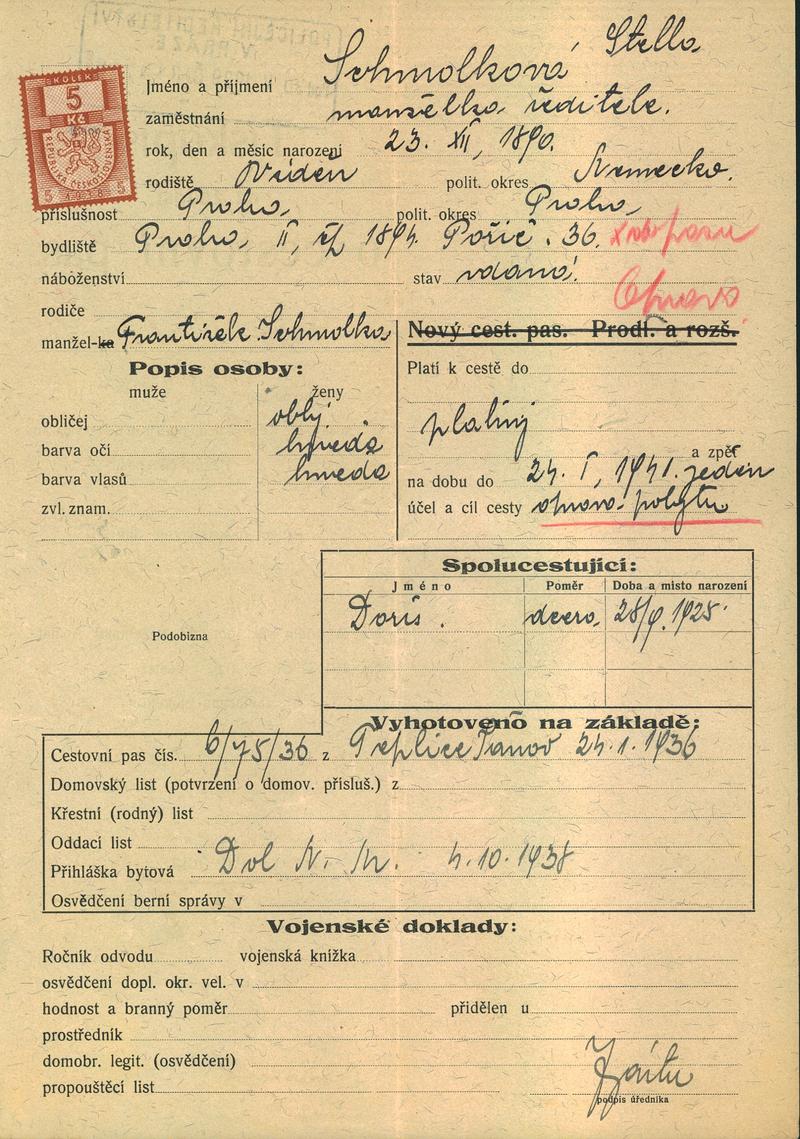 POLICEJNÍ ŘEDITELSTVÍ
V PRAZE
KOLEK
5
Kč
REPUBLIKA ČESKOSLOVENSKÁ
5 1938 5
Jméno a příjmení Schmolková Stella
zaměstnání manželka ředitele.
rok, den a měsíc narození 23. XII, 1890.
rodiště Vídeň polit. okres Německo.
příslušnost Praha, polit. okres Praha,
bydliště Praha, II, čp 1894 Pořič. 36.
náboženství stav vdaná.
Oprava
rodiče
manžel-ka František Schmolka
Nový cest. pas. Prodl. a rozš.
Popis osoby:
muže ženy
obličej oblý.
barva očí hnědá
barva vlasů hnědá
zvl. znam.
Platí k cestě do
platný
a zpět
na dobu do 24. I, 1941. jeden
účel a cíl cesty oprava pobytu
Spolucestující:
Jméno Poměr Doba a místo narození
Doris. dcera, 1925.
Podobizna
Vyhotoveno na základě:
Cestovní pas čís. 6/75/36 z Teplice Šanov 24.1.1936
Domovský list (potvrzení o domov. přísluš.) z
Křestní (rodný) list
Oddací list
Přihláška bytová 4.10.1938
Osvědčení berní správy v
Vojenské doklady:
Ročník odvodu vojenská knížka
osvědčení dopl. okr. vel. v
hodnost a branný poměr přidělen u
prostředník
domobr. legit. (osvědčení)
propouštěcí list
podpis úředníka